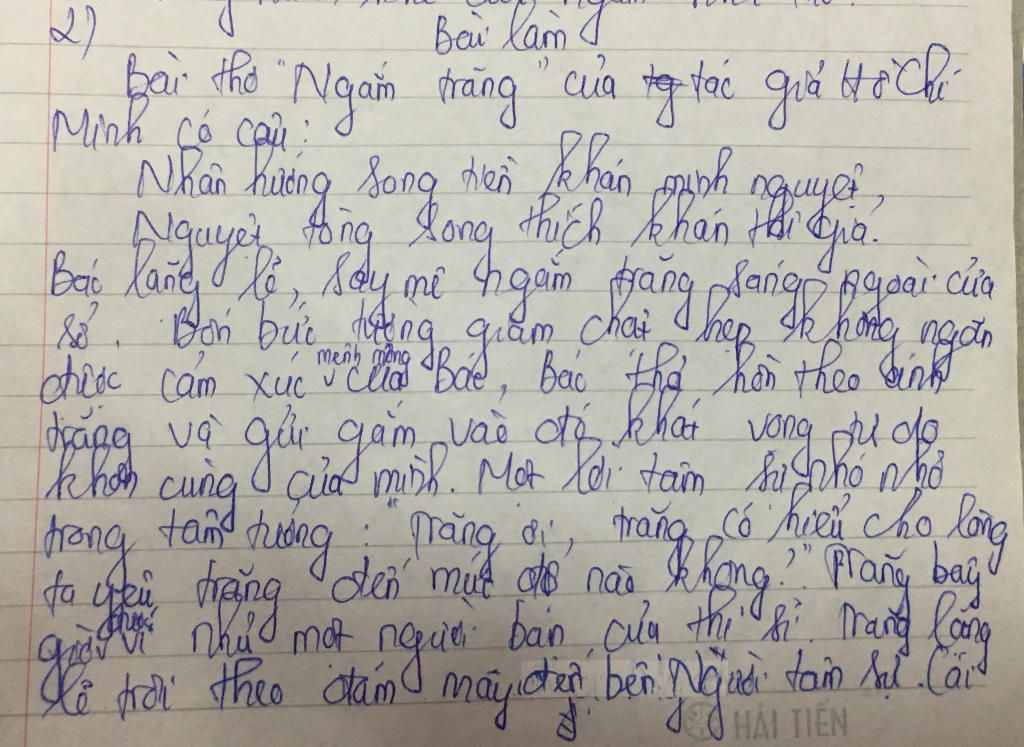 2) Bài làm
Bài thơ "Ngắm trăng" của tác giả Hồ Chí
Minh có câu:
Nhân hướng song tiền khán minh nguyệt,
Nguyệt tòng song thích khán thi gia.
Bác lặng lẽ, say mê ngắm trăng sáng ngoài cửa
sổ. Bốn bức tường giam chật hẹp không ngăn
được cảm xúc mênh mông của Bác, Bác thả hồn theo ánh
trăng và gửi gắm vào đó khát vọng tự do
khôn cùng của mình. Một lời tâm sự nho nhỏ
trong tâm tưởng: "Trăng ơi, trăng có hiểu cho lòng
ta yêu trăng đến mức độ nào không?" Trăng bây
giờ được ví như một người bạn của thi sĩ. Trăng lặng
lẽ trôi theo đám mây đến bên Người tâm sự. Cái
HẢI TIẾN